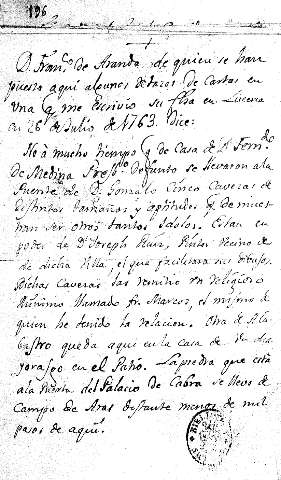 196
D. Fran.co de Aranda, de quien se han
puesto aqui algunos de
Una q me Escrivio su fha en Lucena
en 26 de Julio de 1763. Dice:
No á mucho tiempo q de Casa de D. Fern.do
de Medina Presb.ro Defunto se llevaron a la
Puente de D. Gonzalo Cinco Caveras de
distintos tamaños, y aptitudes, q demues-
tran ser otros tantos Idolos. Estan en
poder de D. Joseph Ruiz, Pintor Vecino de
de dicha Villa, el que facilitara sus
Dichas Caveras las remitio un Religioso
llamado fr. Marcos, el mismo de
quien he tenido la relacion. Otra de Ala-
bastro queda aqui en la casa de Un
en el Patio. La piedra que está
a la Puerta del Palacio de Cabra se llevó de
Campo de Aras distante menos de mil
pasos de aqui.